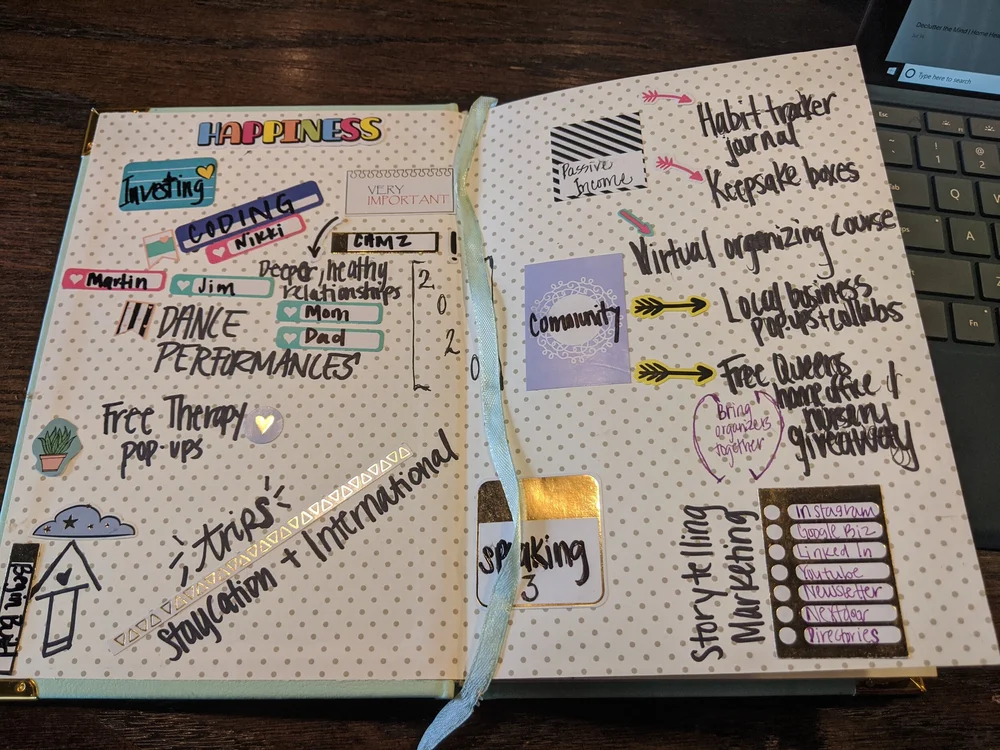 HAPPINESS
Investing
VERY
IMPORTANT
CODING
Nikki
Martin
Jim
Deeper/heathy
relationships
Mom
Dad
2
0
2
0
DANCE
PERFORMANCES
Free Therapy
pop-ups
trips
Staycation + International
Passive
Income
Habit tracker
journal
Keepsake boxes
Virtual organizing course
Community
Local business
pop ups + collabs
Free Queens
home office /
nursery
giveaway
Bring
organizers
together
Speaking
3
Storytelling
Marketing
Instagram
Google Biz
Linked In
Youtube
Newsletter
Nextdoor
Directories
Declutter the Mind | Home
Type here to search
Tab
Q
A
Fn
!
1
@
2